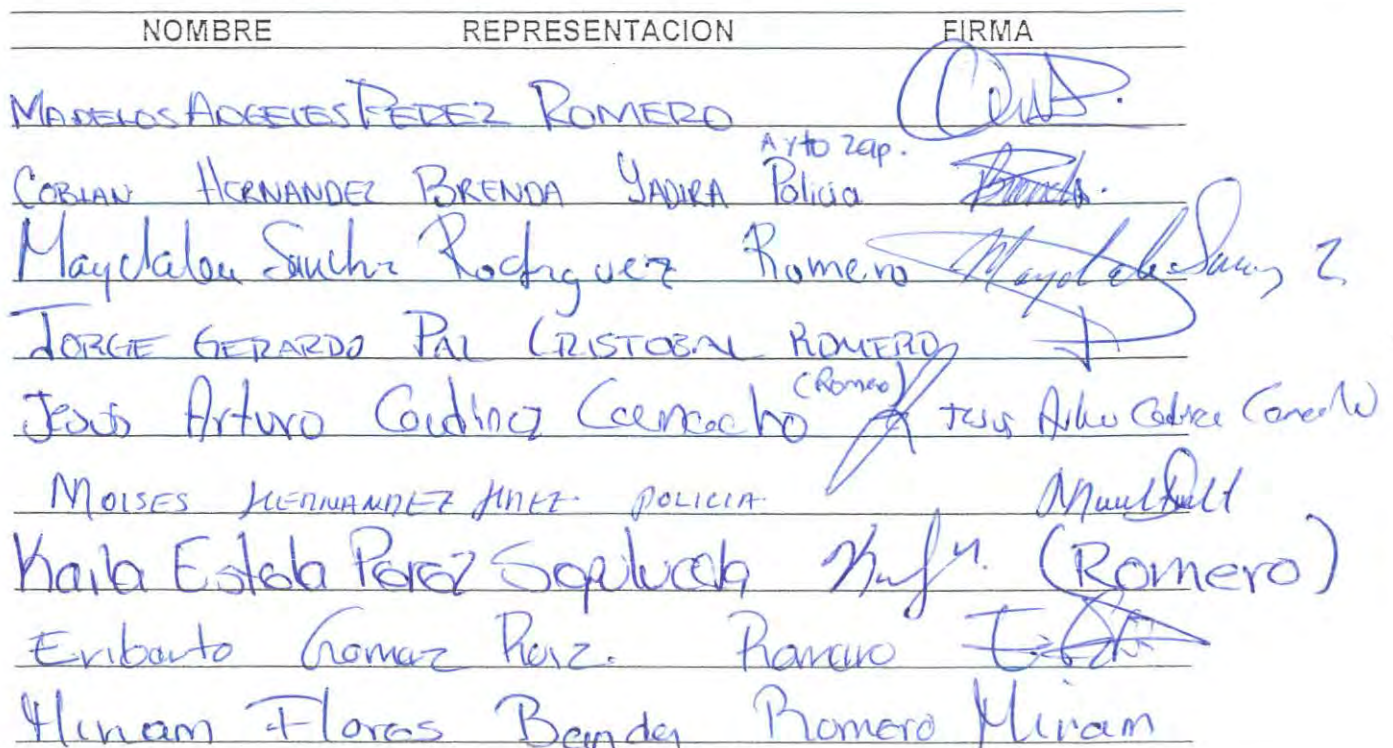 NOMBRE REPRESENTACION FIRMA
MADELOS ANGELES PEREZ ROMERO
COBIAN HERNANDEZ BRENDA YADIRA Ayto Zap. Policia
Magdalena Sanchez Rodriguez Romero
JORGE GERARDO PAL CRISTOBAL ROMERO
Jesus Arturo Camacho (Romero)
MOISES HERNANDEZ POLICIA
Karla Estela Perez Sepulveda (Romero)
Eriberto Gomez Ruiz. Romero
Miriam Flores Banda Romero Miriam